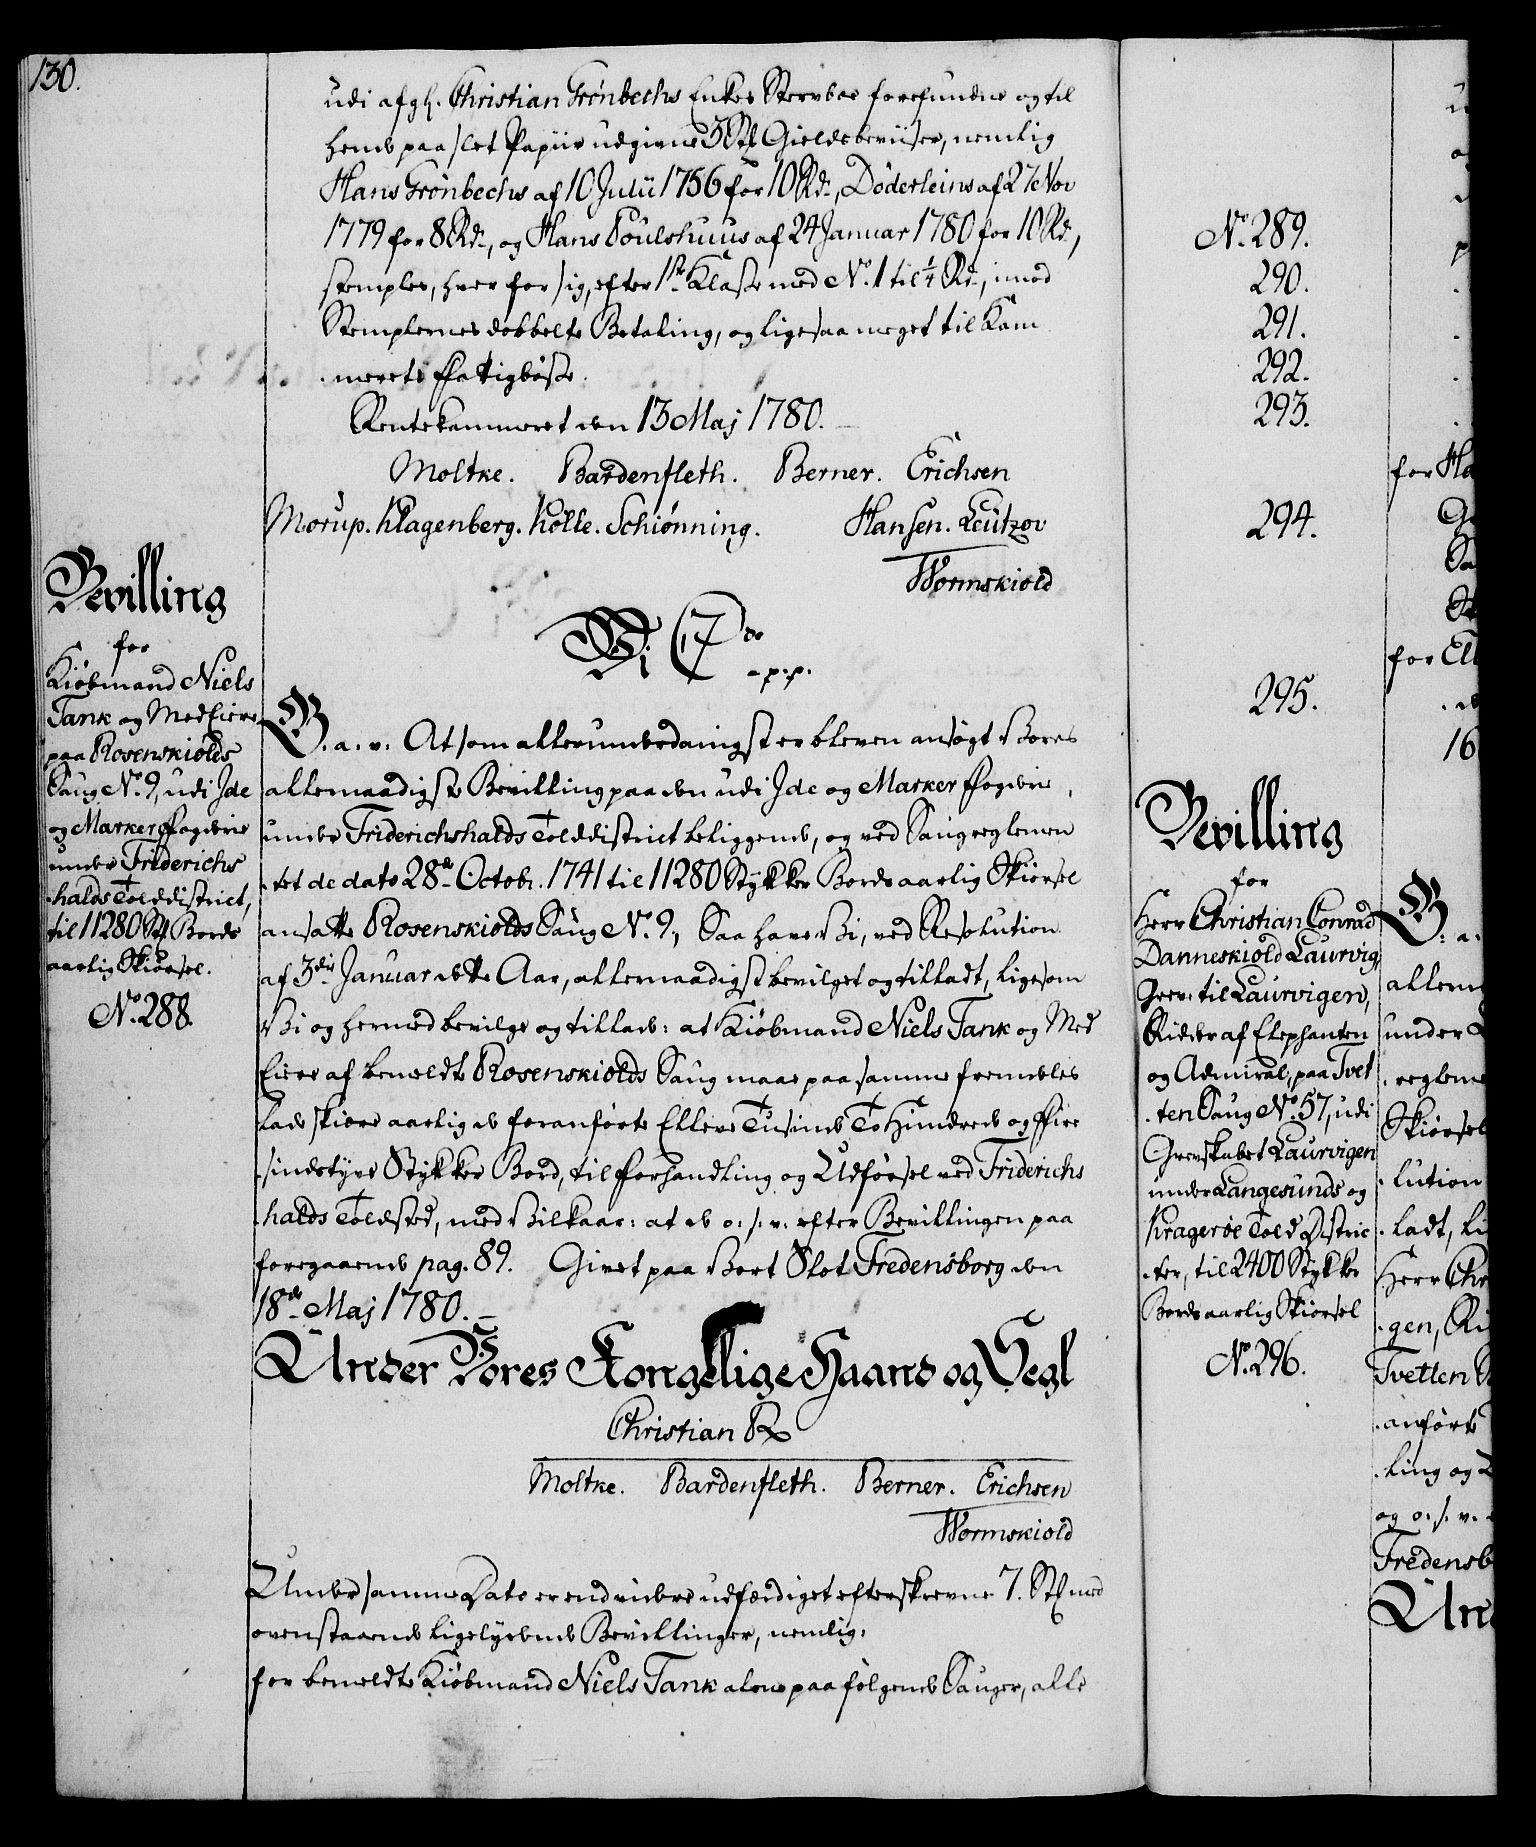 130.
udi afgl. Christian Grönbechs Enkes Sterboe forefundne og til
hende paa slet Papiir udgivne 3 Stk Gieldsbeviiser, nemlig
Hans Grönbechs af 10 Julii 1756 for 10 Rd., Döderleins af 27 Nov
1779 for 8 Rd., og Hans Poulshuus af 24 Januar 1780 for 10 Rd.,
stemples, hver for sig, efter 1ste Klasse med No. 1 til ¼ Rd., imod
Stemplernes dobbelte Betaling, og ligesaa meget til Kam
merets Fattigbösse.
Rentekammeret den 13 Maj 1780.
Moltke. Bardenfleth. Berner. Erichsen
Morup. Klagenberg. Kölle. Schiönning. Hansen. Leützov
Wormskiold
Bevilling
for
Kiöbmand Niels
Tank og MedEiere
paa Rosenskiolds
Saug No. 9, udi Jde
og Marker Fogderie
under Friderichs
halds Tolddistrict,
til 11280 Stk Bords
aarlig Skiörsel.
No. 288.
Vi C 7de
p.p.
G. a. v. At som allerunderdanigst er bleven ansögt Vores
allernaadigste Bevilling paa den udi Jde og Marker Fogderie,
under Friderichshalds Tolddistrict beliggende, og ved Saugreglemen
tet de dato 28de Octob. 1741 til 11280 Stykker Bords aarlig Skiörsel
ansatte Rosenskiolds Saug No. 9, Saa have Vi, ved Resolution
af 3die Januar dette Aar, allernaadigst bevilget og tilladt, ligesom
Vi og hermed bevilge og tillade: at Kiöbmand Niels Tank og Med
Eiere af bemeldte Rosenskiolds Saug maae paa samme fremdeles
lade skiære aarlig de foranförte Elleve Tusinde To Hundrede og Fire
sindstyve Stykker Bord, til Forhandling og Udförsel ved Friderichs
halds Toldsted, med Vilkaar: at de o. s. v. efter Bevillingen paa
foregaaende pag. 89. Givet paa Vort Slot Fredensborg den
18de Maj 1780.
Under Vores Kongelige Haand og Segl
Christian R
Moltke. Bardenfleth. Berner. Erichsen
Wormskiold
Under samme Dato er endvidere udfærdiget efterskrevne 7. Stk med
ovenstaaende ligelydende Bevillinger, nemlig:
for bemeldte Kiöbmand Niels Tank alene paa fölgende Sauger, alle
No. 289.
290.
291.
292.
293.
294.
295.
Bevilling
for
Herr Christian Conrad
Danneskiold Laurvig,
Greve til Laurvigen,
Ridder af Elephanten
og Admiral, paa Tvet
ten Saug No. 57, udi
Grevskabet Laurvigen
under Langesunds og
Kragerøe Told Distric
ter, til 2400 Stykker
Bords aarlig Skiörsel
No. 296.
for Ha
for El
16
G. a.
allern
under
regleme
Skiörsel
lution
ladt, li
Herr Chr
gen, Ri
Tvetten S
anförte
ling og
og o. s. v.
Fredensb
Und